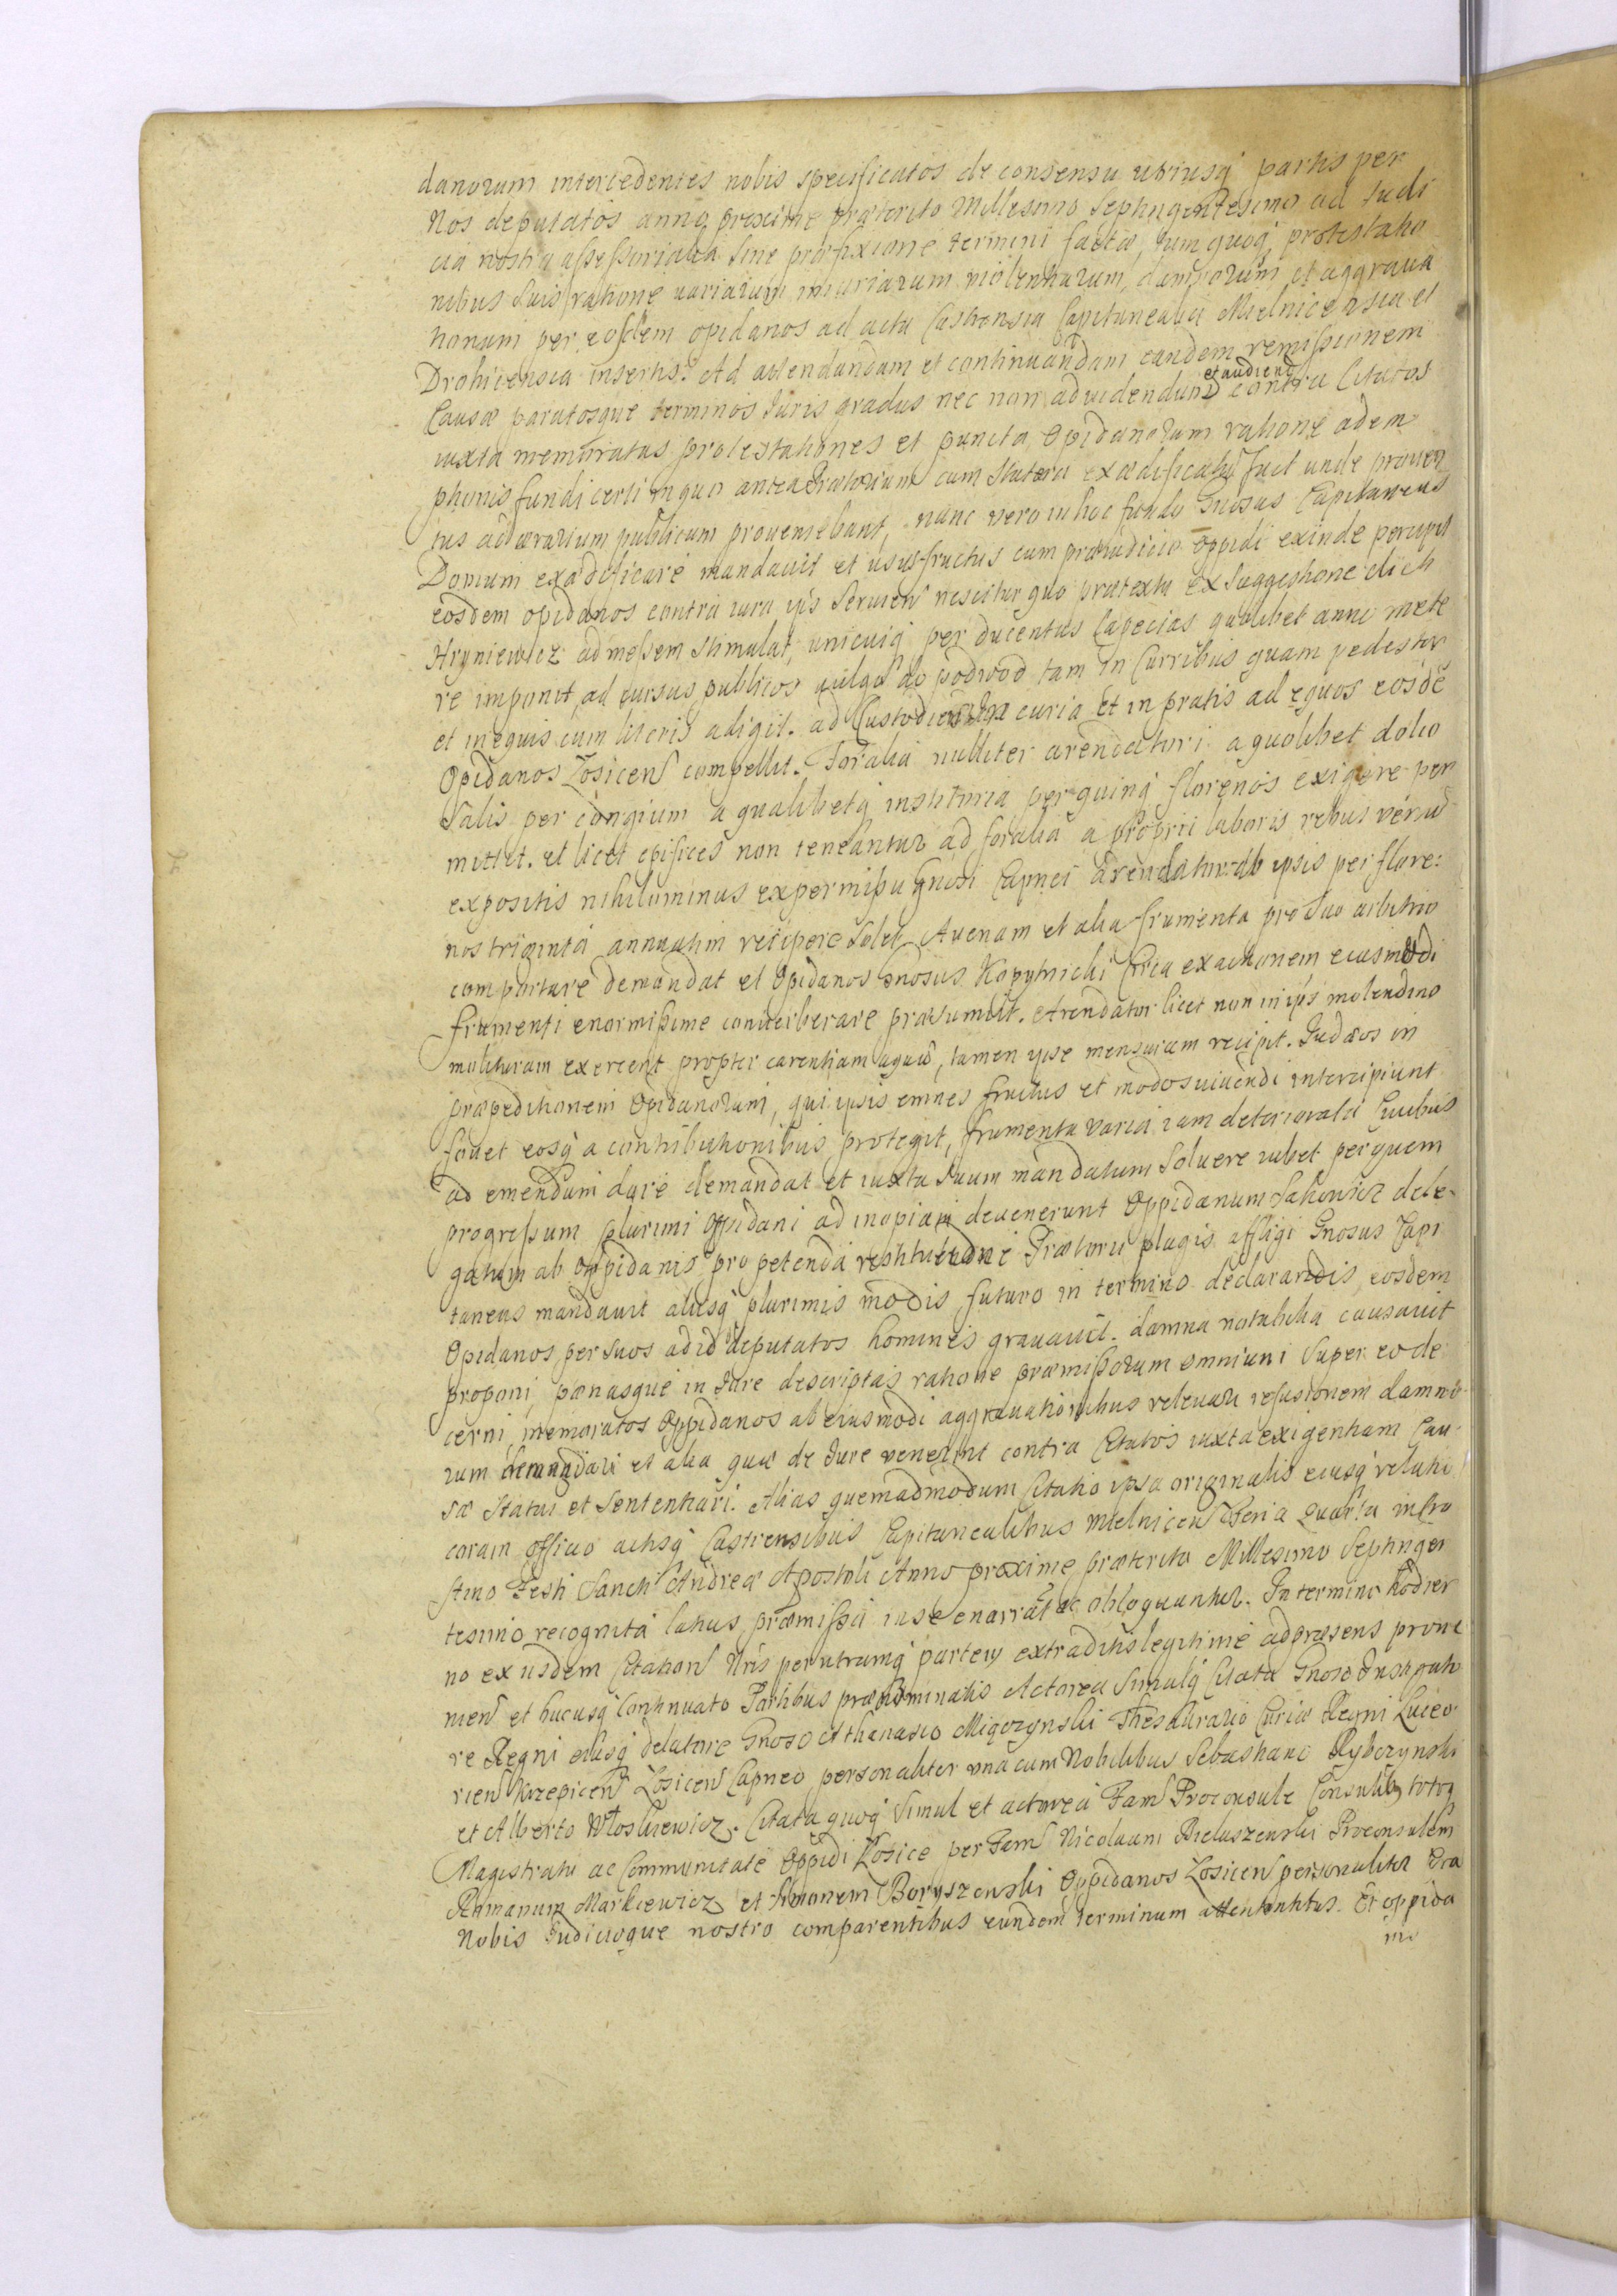 danorum intercedentes nobis specificatos de consensu utriusq partis per
Nos deputatos anno proxime præterito Millesimo Septingentesimo ad Judi
cia nostra assessorialia sine præfixione termini factæ, tum quoq protestatio
nibus suis ratione variarum iniuriarum violentiarum, damnorum et aggrava
tionum per eosdem opidanos ad acta Castrensia Capitanealia Mielnicensia et
Drohicensia insertis. Ad attendandam et continuandam eandem remissionem
Causæ paratosque terminos Juris gradus nec non ad videndum et audiend contra Citatos
iuxta memoratas protestationes et puncta Opidanorum ratione adem
ptionis fundi certi in quo antea Prætorium cum statera exædificatu fuit unde proven
tus ad ærarium publicum proveniebant, nunc vero in hoc fundo Gnosus Capitaneus
Domum exædificare mandavit et usus fructus cum præiudicio oppidi exinde percipit
eosdem opidanos contra iura ips servien nescitur quo prætextu ex suggestione dicti
Hryniewicz ad messem stimulat, unicuiq per ducentas Capecias quolibet anno mete
re imponit, ad cursus publicos vulgo do podwod tam in Curribus quam pedester
et in equis cum literis adigit. ad Custodiam in curia et in pratis ad equos eosdē
Opidanos Łosicen compellit. Foralia nulliter arendatori a quolibet dolio
Salis per congium a qualibetq institoria per quinq florenos exigere per
mittit. et licet opifices non teneantur ad foralia a proprii laboris rebus venū
expositis nihilominus ex permissu Gnosi Capnei Arendator ab ipsis per flore:
nos triginta annuatim recipere solet, Avenam et alia frumenta pro suo arbitrio
comportare demandat et Opidanos Gnosus Kopytnicki Circa exactionem eiusmodi
frumenti enormissime converberare præsumit. Arendator licet non in ips molendino
molituram exercent propter carentiam aquæ, tamen ipse mensuram recipit. Judæos in
præpeditionem Opidanorum, qui ipsis omnes fructus et modos vivendi intercipiunt
fovet eosq a contributionibus protegit, frumenta varia iam deteriorata Civibus
ad emendum dare demandat et iuxta suum mandatum solvere iubet per quem
progressum plurimi oppidani ad inopiam devenerunt Oppidanum Sahowicz dele-
gatum ab oppidanis pro petenda restitutione Prætorii plagis affligi Gnosus Capi
taneus mandavit aliisq plurimis modis futuro in termino declarandis, eosdem
Opidanos per suos ad id deputatos homines gravavit. damna notabilia causavit
proponi, pænasque in Jure descriptas ratione præmissorum omnium super eode
cerni memoratos Oppidanos ab eiusmodi aggravationibus relevari refusionem damno-
rum demandari et alia quæ de Jure venerint contra Citatos iuxta exigentiam Cau-
sæ Statui et sententiari. Alias quemadmodum Citatio ipsa originalis eiusq relatio
coram officio actisq Castrensibus Capitanealibus Mielnicen Feria Quarta in Cra
stino Festi Sancti Andreæ Apostoli Anno proxime præterito Millesimo Septingen
tesimo recognita latius præmissa in se enarrat ac obloquuntur. In termino hodier
no ex iisdem Citation Nris per utramq partem extraditis legitime ad præsens prove
nien et hucusq Continuato Partibus prænominatis Actorea simulq Citata Gnoso Instigato
re Regni eiusq delatore Gnoso Athanasio Miączynski Thesaurario Curiæ Regni Luceo
rien Krzepicen Łosicen Capneo personaliter una cum Nobilibus Sebastiano Rybczynski
et Alberto Włoskiewicz. Citata quoq simul et actorea Fam Proconsule Consulib totoq
Magistratu ac Communitate Oppidi Łosice per Fam Nicolaum Bieluszewski Proconsulem
Romanum Markiewicz et Simonem Boryszewski Oppidanos Łosicen personaliter Cra
Nobis Judicioque nostro comparentibus eundem terminum attentantibus. Et oppida
ni